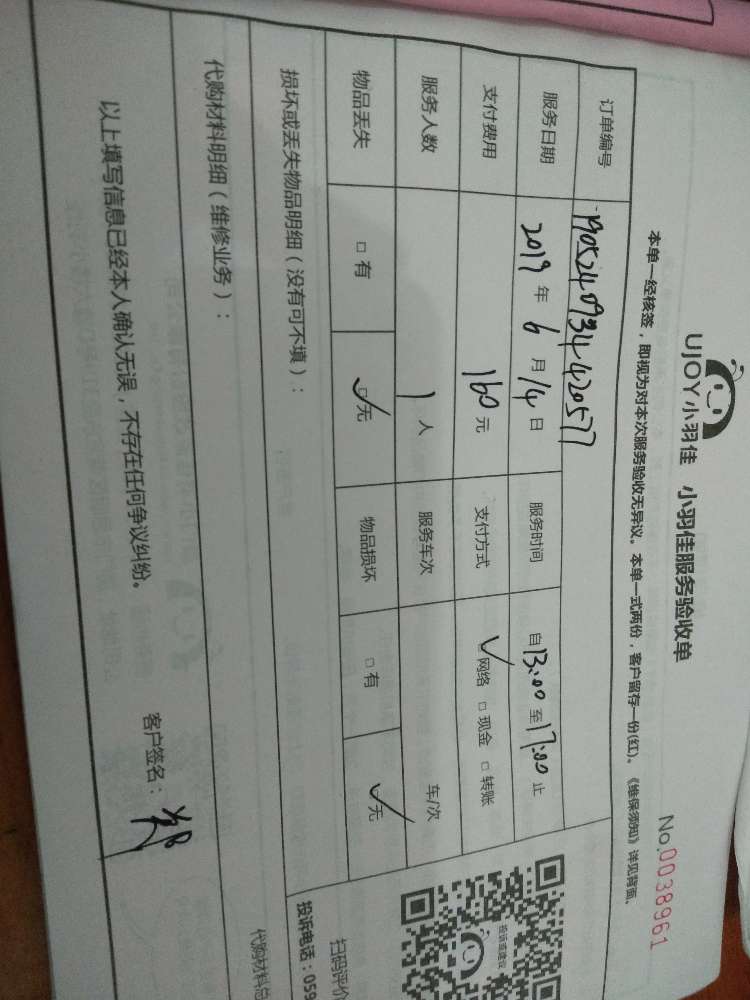 UJOY小羽佳 小羽佳服务验收单
No.0038961
本单一经核签，即视为对本次服务验收无异议。本单一式两份，客户留存一份(红)。《维保须知》详见背面。
订单编号 1905240934420577
服务日期 2019年6月14日 服务时间 自13:00至17:00止
支付费用 160元 支付方式 ☑网络 □现金 □转账
服务人数 1人 服务车次 车/次
物品丢失 □有 ☑无 物品损坏 □有 ☑无
损坏或丢失物品明细（没有可不填）：
代购材料明细（维修业务）：
以上填写信息已经本人确认无误，不存在任何争议纠纷。
客户签名：
投诉或建议
扫码评价
投诉电话：059
代购材料总